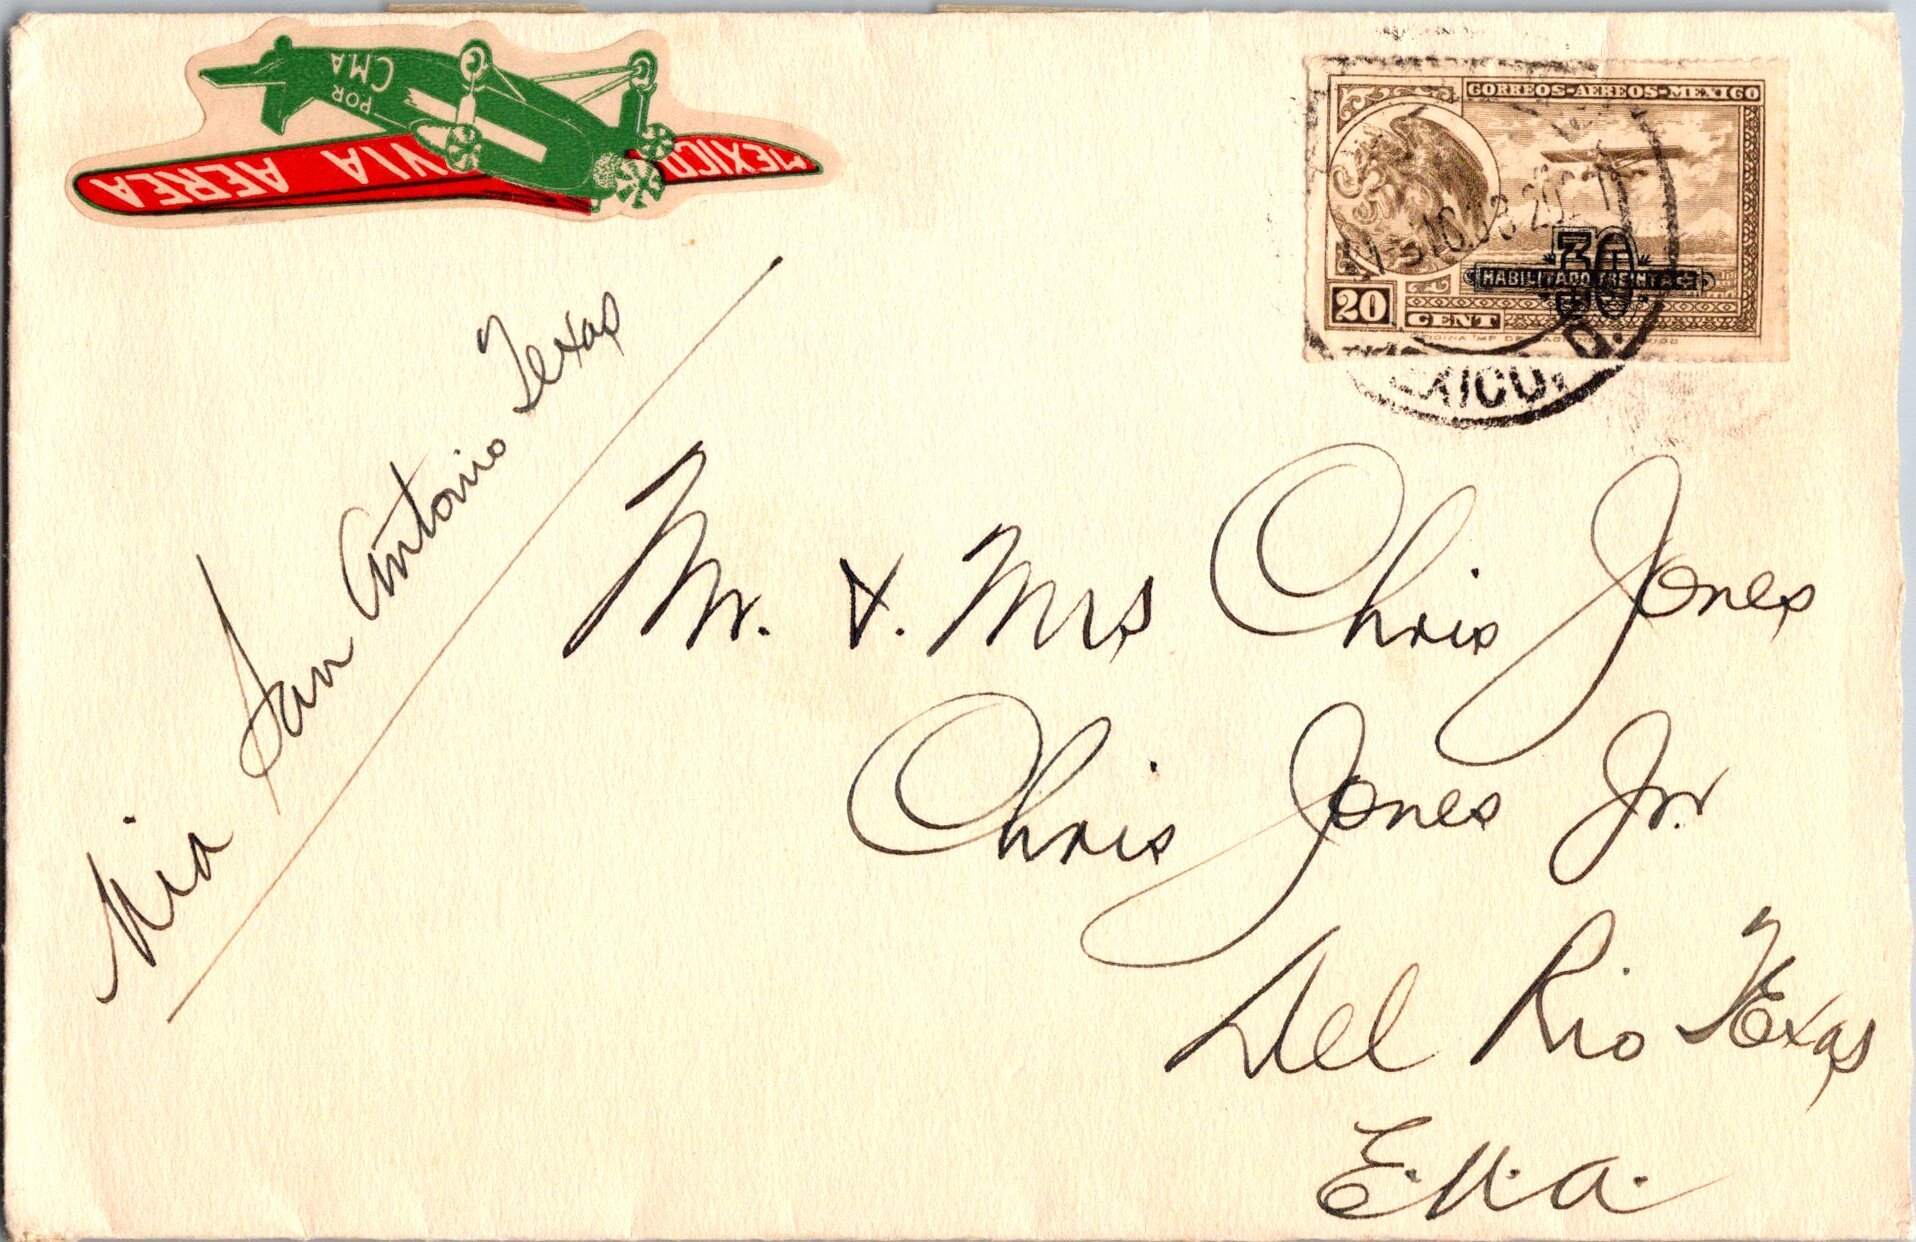 POR
CMA
MEXICO VIA AEREA
CORREOS-AEREOS-MEXICO
30
HABILITADO TREINTA
20 CENT
MEXICO, D.
Via San Antonio Texas
Mr. & Mrs Chris Jones
Chris Jones Jr.
Del Rio Texas
E.U.A.